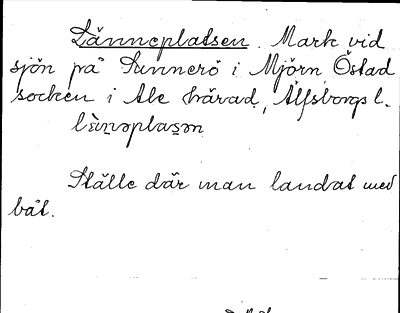 Länneplatsen. Mark vid
sjön på Sunnerö i Mjörn, Östad
socken i Ale härad, Älfsborgs l.
Ställe där man landat med
båt.